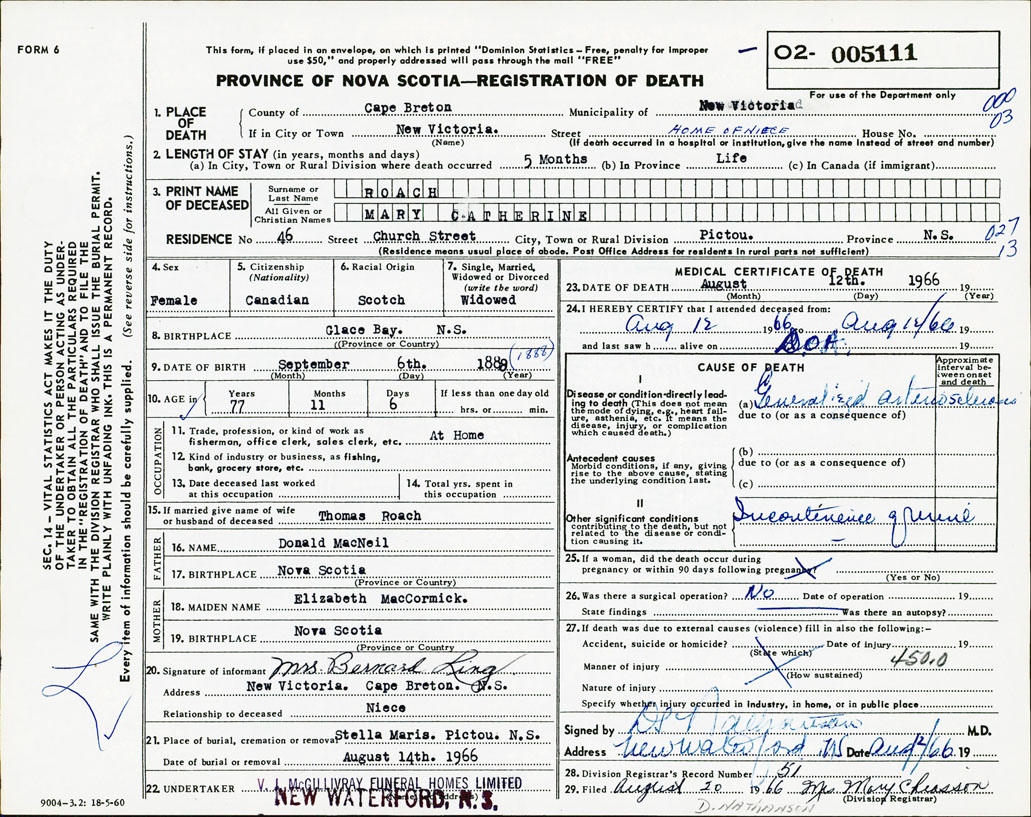 FORM 6
This form, if placed in an envelope, on which is printed "Dominion Statistics – Free, penalty for improper
use $50," and properly addressed will pass through the mail "FREE"
O2- 005111
PROVINCE OF NOVA SCOTIA—REGISTRATION OF DEATH
For use of the Department only
000
03
1. PLACE OF DEATH
County of Cape Breton Municipality of New Victoria
If in City or Town New Victoria. Street HOME OF NIECE House No.
(Name) (If death occurred in a hospital or institution, give the name instead of street and number)
2. LENGTH OF STAY (in years, months and days)
(a) In City, Town or Rural Division where death occurred 5 Months (b) In Province Life (c) In Canada (if immigrant)
3. PRINT NAME OF DECEASED
Surname or Last Name ROACH
All Given or Christian Names MARY CATHERINE
RESIDENCE No 46 Street Church Street City, Town or Rural Division Pictou. Province N.S.
(Residence means usual place of abode. Post Office Address for residents in rural parts not sufficient)
027
13
4. Sex
Female
5. Citizenship (Nationality)
Canadian
6. Racial Origin
Scotch
7. Single, Married, Widowed or Divorced (write the word)
Widowed
8. BIRTHPLACE Glace Bay. N.S.
(Province or Country)
9. DATE OF BIRTH September 6th. 1888 (1888)
(Month) (Day) (Year)
10. AGE in Years Months Days If less than one day old
77 11 6 hrs. or min.
OCCUPATION
11. Trade, profession, or kind of work as
fisherman, office clerk, sales clerk, etc. At Home
12. Kind of industry or business, as fishing,
bank, grocery store, etc.
13. Date deceased last worked
at this occupation
14. Total yrs. spent in
this occupation
15. If married give name of wife
or husband of deceased Thomas Roach
FATHER
16. NAME Donald MacNeil
17. BIRTHPLACE Nova Scotia
(Province or Country)
MOTHER
18. MAIDEN NAME Elizabeth MacCormick.
19. BIRTHPLACE Nova Scotia
(Province or Country)
20. Signature of informant Mrs. Bernard King
Address New Victoria. Cape Breton. N.S.
Relationship to deceased Niece
21. Place of burial, cremation or removal Stella Maris. Pictou. N.S.
Date of burial or removal August 14th. 1966
22. UNDERTAKER V. J. McGILLIVRAY FUNERAL HOMES LIMITED
NEW WATERFORD, N.S.
9004-3.2: 18-5-60
MEDICAL CERTIFICATE OF DEATH
23. DATE OF DEATH August 12th. 1966 19
(Month) (Day) (Year)
24. I HEREBY CERTIFY that I attended deceased from:
Aug 12 1966 Aug 12/66 19
and last saw h alive on D.O.A. 19
CAUSE OF DEATH
Approximate interval between onset and death
I
Disease or condition directly leading to death (This does not mean
the mode of dying, e.g., heart failure, asthenia, etc. It means the
disease, injury, or complication
which caused death.)
(a) Generalized arteriosclerosis
due to (or as a consequence of)
Antecedent causes
Morbid conditions, if any, giving
rise to the above cause, stating
the underlying condition last.
(b)
due to (or as a consequence of)
(c)
II
Other significant conditions
contributing to the death, but not
related to the disease or condition causing it.
Incontinence of urine
25. If a woman, did the death occur during
pregnancy or within 90 days following pregnancy?
(Yes or No)
26. Was there a surgical operation? No Date of operation 19
State findings Was there an autopsy?
27. If death was due to external causes (violence) fill in also the following:–
Accident, suicide or homicide? Date of injury 19
(State which)
450.0
Manner of injury
(How sustained)
Nature of injury
Specify whether injury occurred in industry, in home, or in public place
Signed by M.D.
Address New Waterford NS Date Aug 12/66 19
28. Division Registrar's Record Number 51
29. Filed August 20 1966 Mrs. Mary Chiasson
(Division Registrar)
D. NATHANSON
SEC. 14 – VITAL STATISTICS ACT MAKES IT THE DUTY
OF THE UNDERTAKER OR PERSON ACTING AS UNDER-
TAKER TO OBTAIN ALL THE PARTICULARS REQUIRED
IN THE "REGISTRATION OF DEATH" AND TO FILE THE
SAME WITH THE DIVISION REGISTRAR WHO SHALL ISSUE THE BURIAL PERMIT.
WRITE PLAINLY WITH UNFADING INK. THIS IS A PERMANENT RECORD.
Every item of information should be carefully supplied. (See reverse side for instructions.)